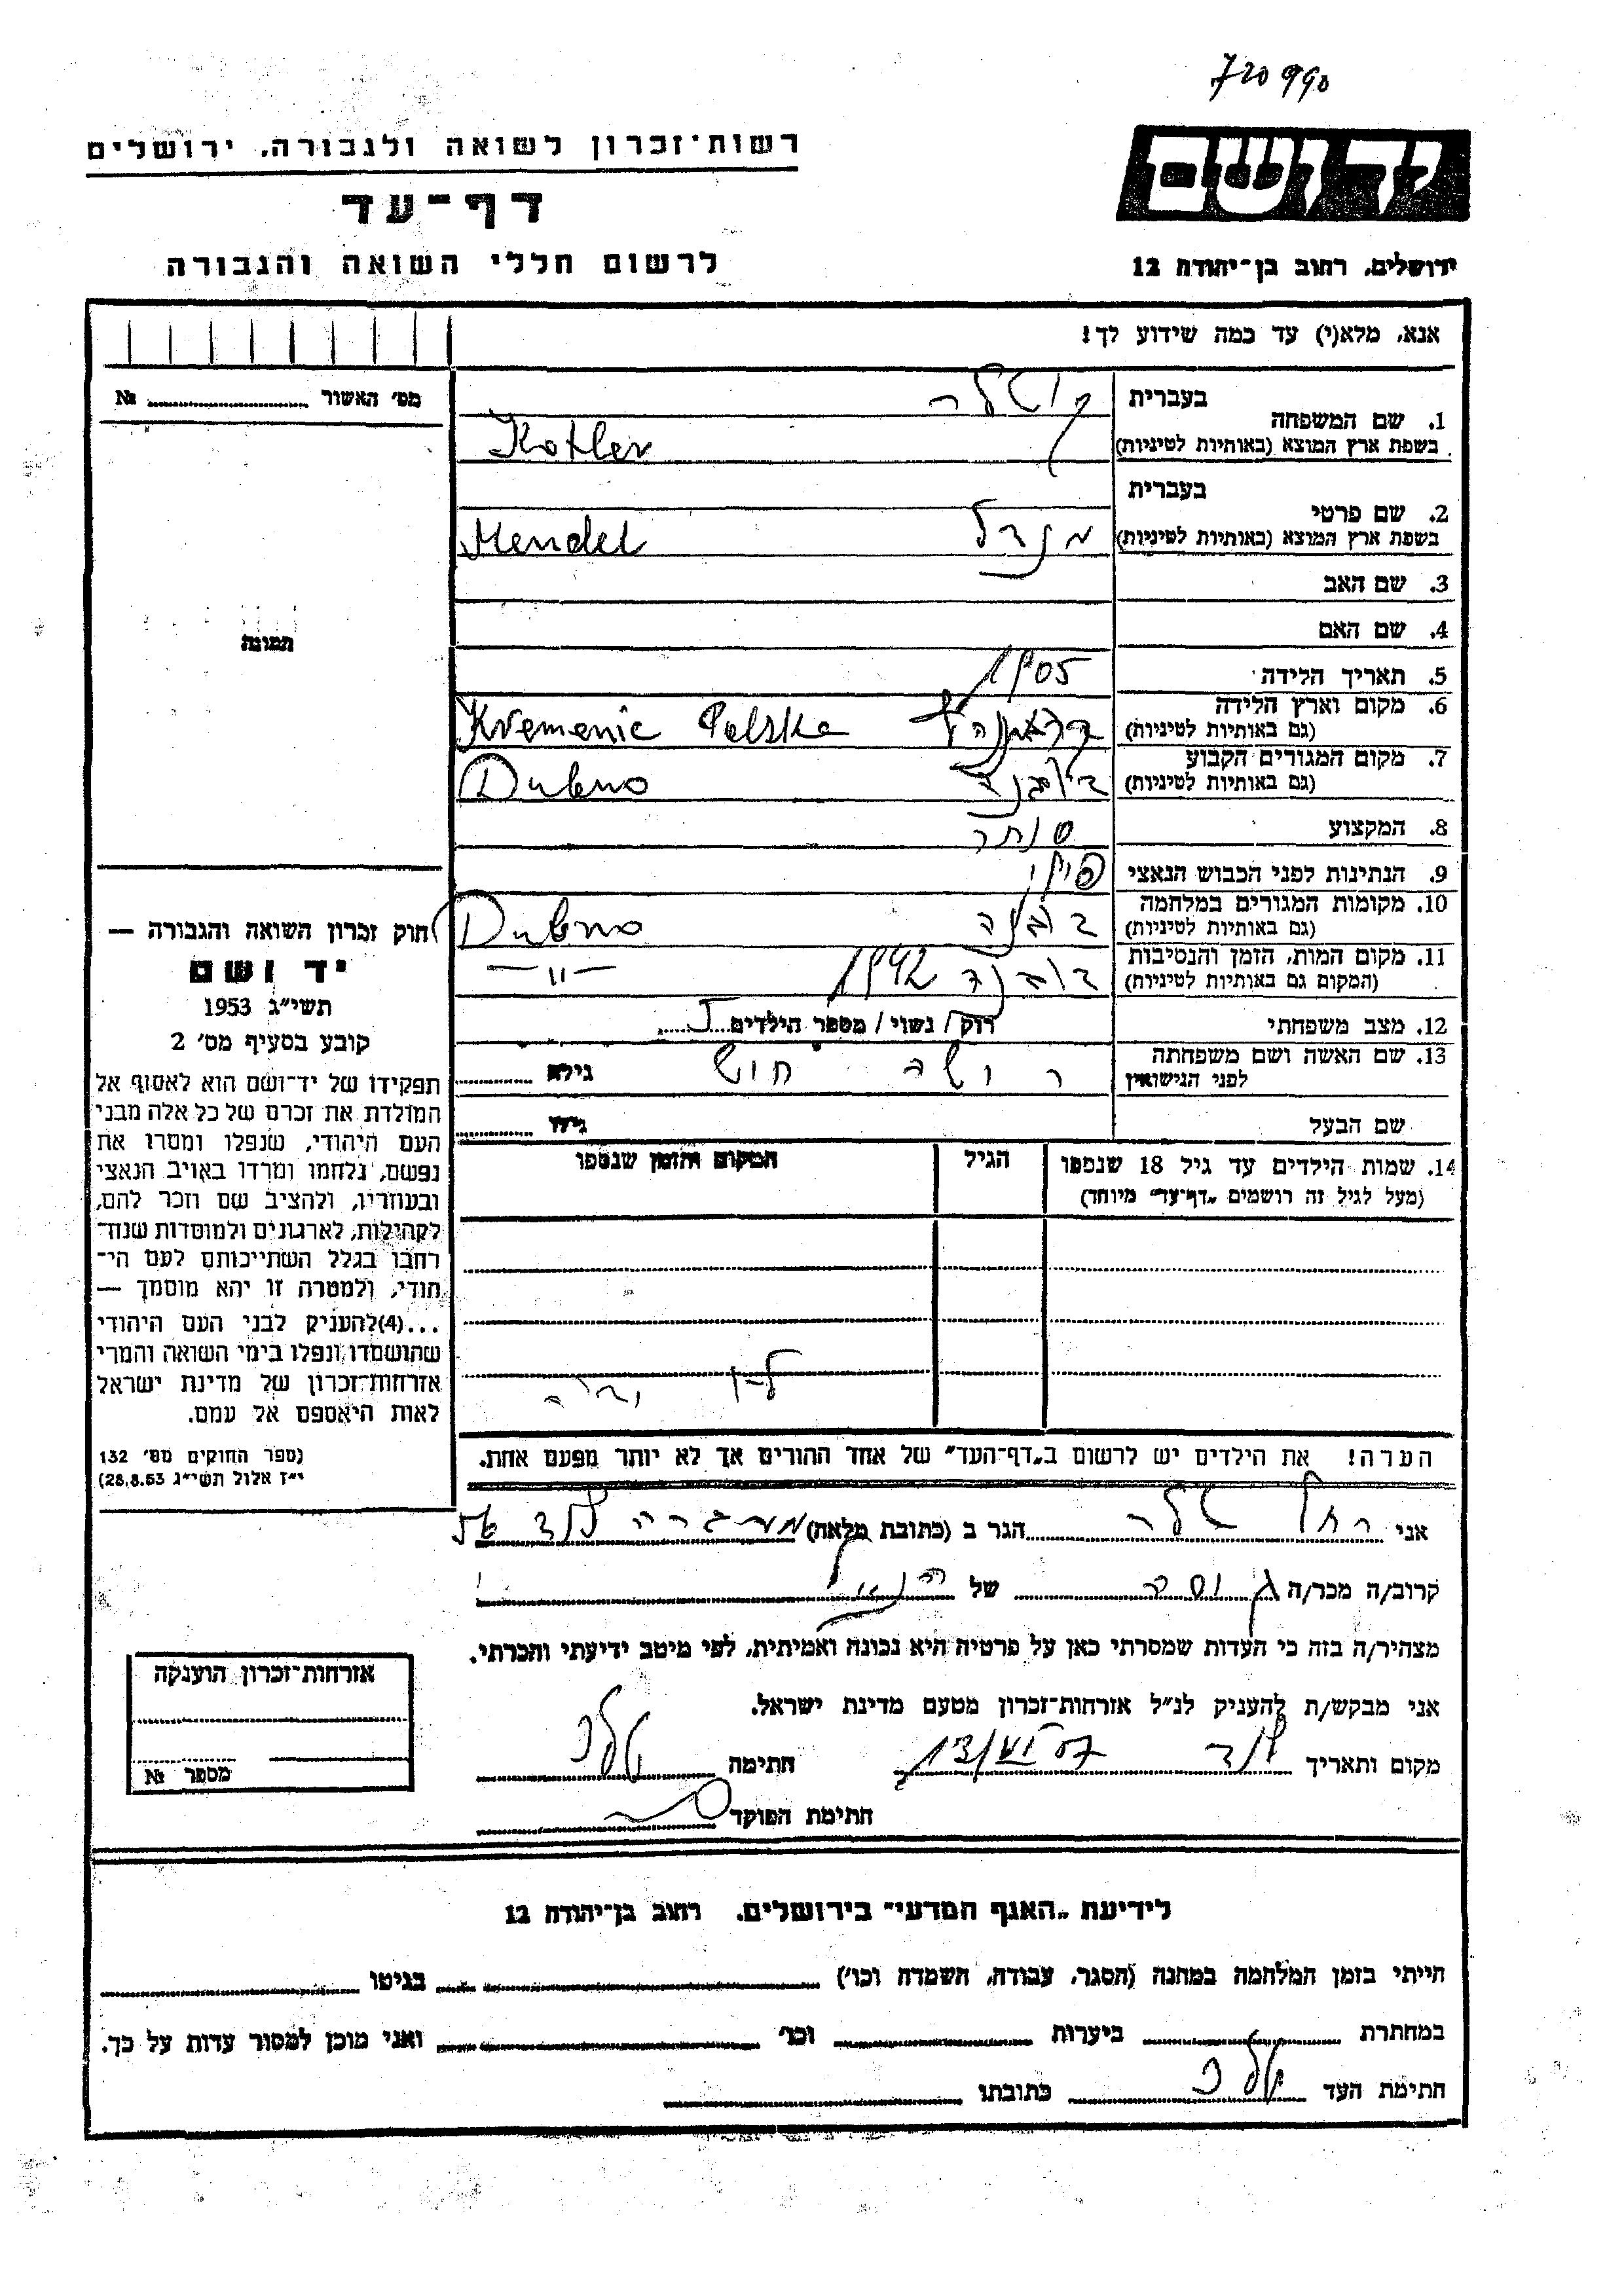 720990
רשות־זכרון לשואה ולגבורה, ירושלים
דף־עד
לרשום חללי השואה והגבורה
יד ושם
ירושלים, רחוב בן־יהודה 12
אנא, מלא(י) עד כמה שידוע לך!
מס' האשור № 
1. שם המשפחה
בעברית קוטלר
בשפת ארץ המוצא (באותיות לטיניות) Kotler
2. שם פרטי
בעברית מנדל
בשפת ארץ המוצא (באותיות לטיניות) Mendel
3. שם האב
4. שם האם
תמונה
5. תאריך הלידה 1905
6. מקום וארץ הלידה
(גם באותיות לטיניות) Kremenic Polska
7. מקום המגורים הקבוע
(גם באותיות לטיניות) Dubno
8. המקצוע סוחר
9. הנתינות לפני הכבוש הנאצי
10. מקומות המגורים במלחמה
(גם באותיות לטיניות) Dubno
11. מקום המות, הזמן והנסיבות
(המקום גם באותיות לטיניות) 1942 —〃—
12. מצב משפחתי רוק / נשוי / מספר הילדים
13. שם האשה ושם משפחתה
לפני הנישואין גילה
שם הבעל גילו
14. שמות הילדים עד גיל 18 שנספו
(מעל לגיל זה רושמים „דף־עד" מיוחד)
הגיל
המקום והזמן שנספו
הערה! את הילדים יש לרשום ב„דף־העד" של אחד ההורים אך לא יותר מפעם אחת.
חוק זכרון השואה והגבורה —
יד ושם
תשי"ג 1953
קובע בסעיף מס' 2
תפקידו של יד־ושם הוא לאסוף אל
המולדת את זכרם של כל אלה מבני
העם היהודי, שנפלו ומסרו את
נפשם, נלחמו ומרדו באויב הנאצי
ובעוזריו, ולהציב שם וזכר להם,
לקהילות, לארגונים ולמוסדות שנח־
רבו בגלל השתייכותם לעם הי־
הודי, ולמטרה זו יהא מוסמך —
...(4) להעניק לבני העם היהודי
שהושמדו ונפלו בימי השואה והמרי
אזרחות־זכרון של מדינת ישראל
לאות היאספם אל עמם.
(ספר החוקים מס' 132
י"ז אלול תשי"ג 28.8.53)
אני רחל טלר הגר ב (כתובת מלאה) מעברה לוד
קרוב/ה מכר/ה גיסה של הנ"ל
מצהיר/ה בזה כי העדות שמסרתי כאן על פרטיה היא נכונה ואמיתית, לפי מיטב ידיעתי והכרתי.
אני מבקש/ת להעניק לנ"ל אזרחות־זכרון מטעם מדינת ישראל.
מקום ותאריך לוד חתימה
חתימת הפוקד
אזרחות־זכרון הוענקה
מספר №
לידיעת „האגף המדעי" בירושלים. רחוב בן־יהודה 12
הייתי בזמן המלחמה במחנה (הסגר, עבודה, השמדה וכו') בגיטו
במחתרת ביערות וכו' ואני מוכן למסור עדות על כך.
חתימת העד כתובתו